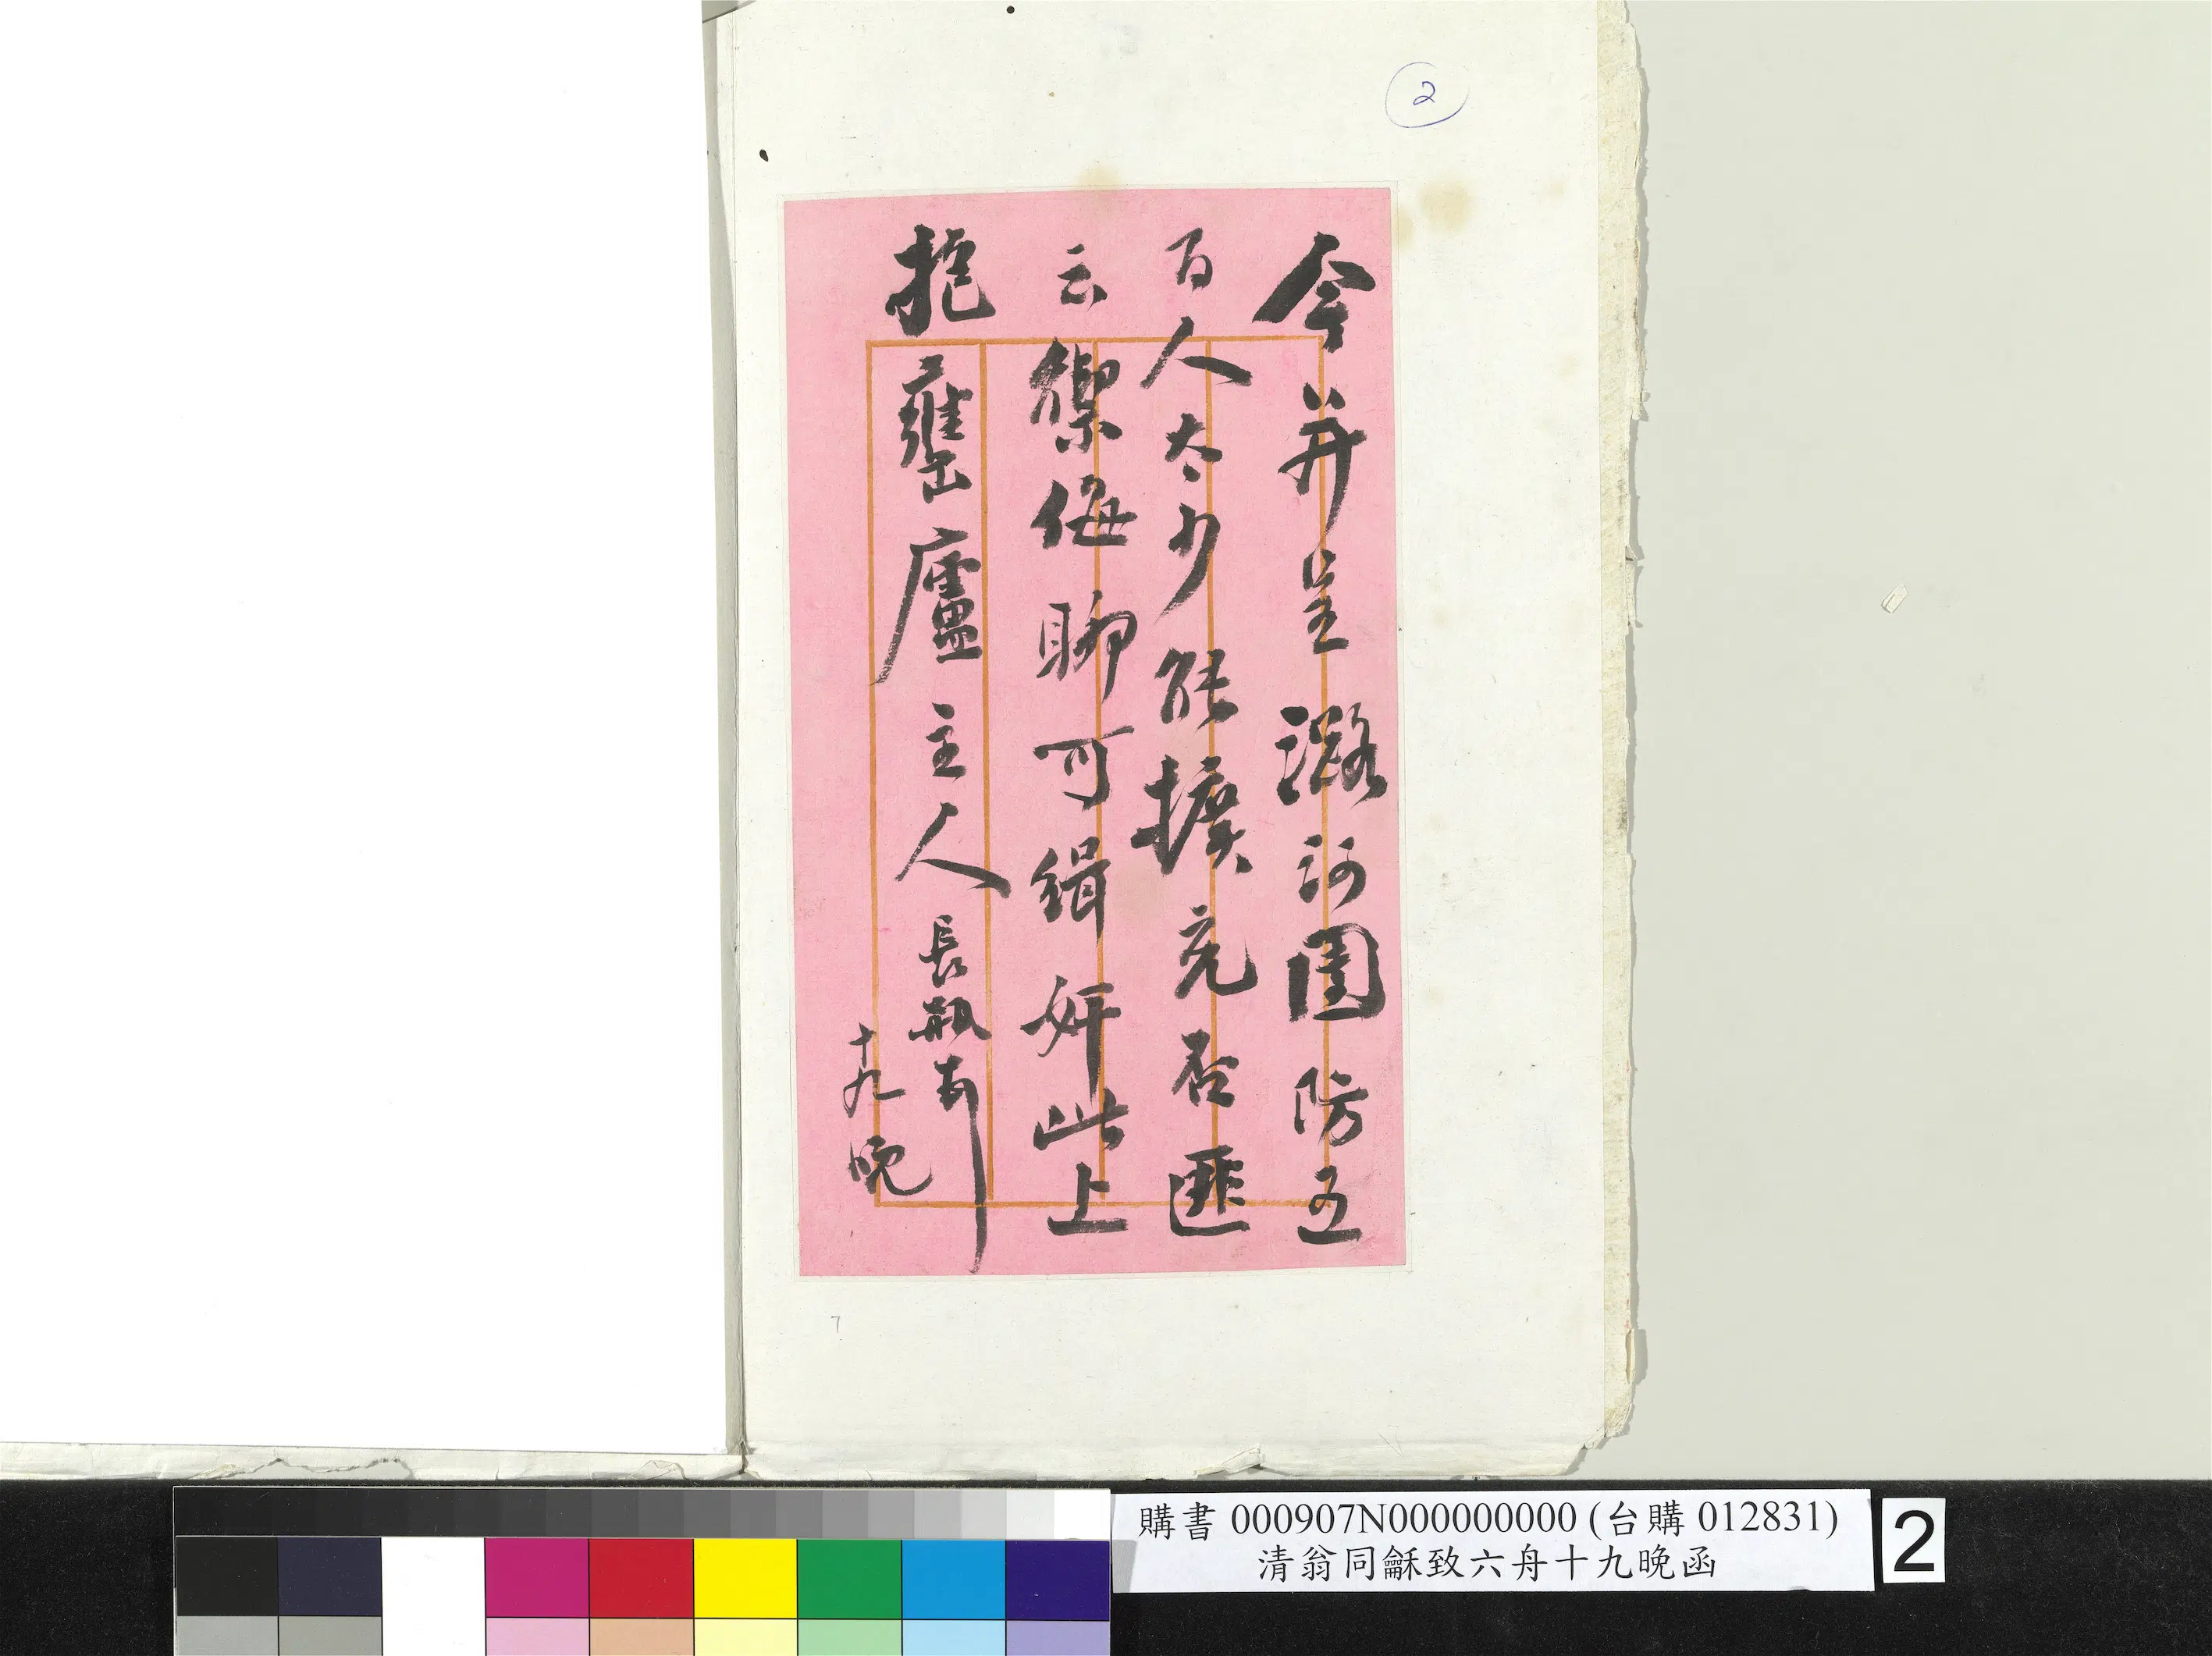 2
今并呈潞河團防五
百人太少能擴充否匪
云禦侮聊可緝奸此上
抱甕廬主人長瓶頓
十九晚
7
購書 000907N000000000 (台購 012831)
清翁同龢致六舟十九晚函
2